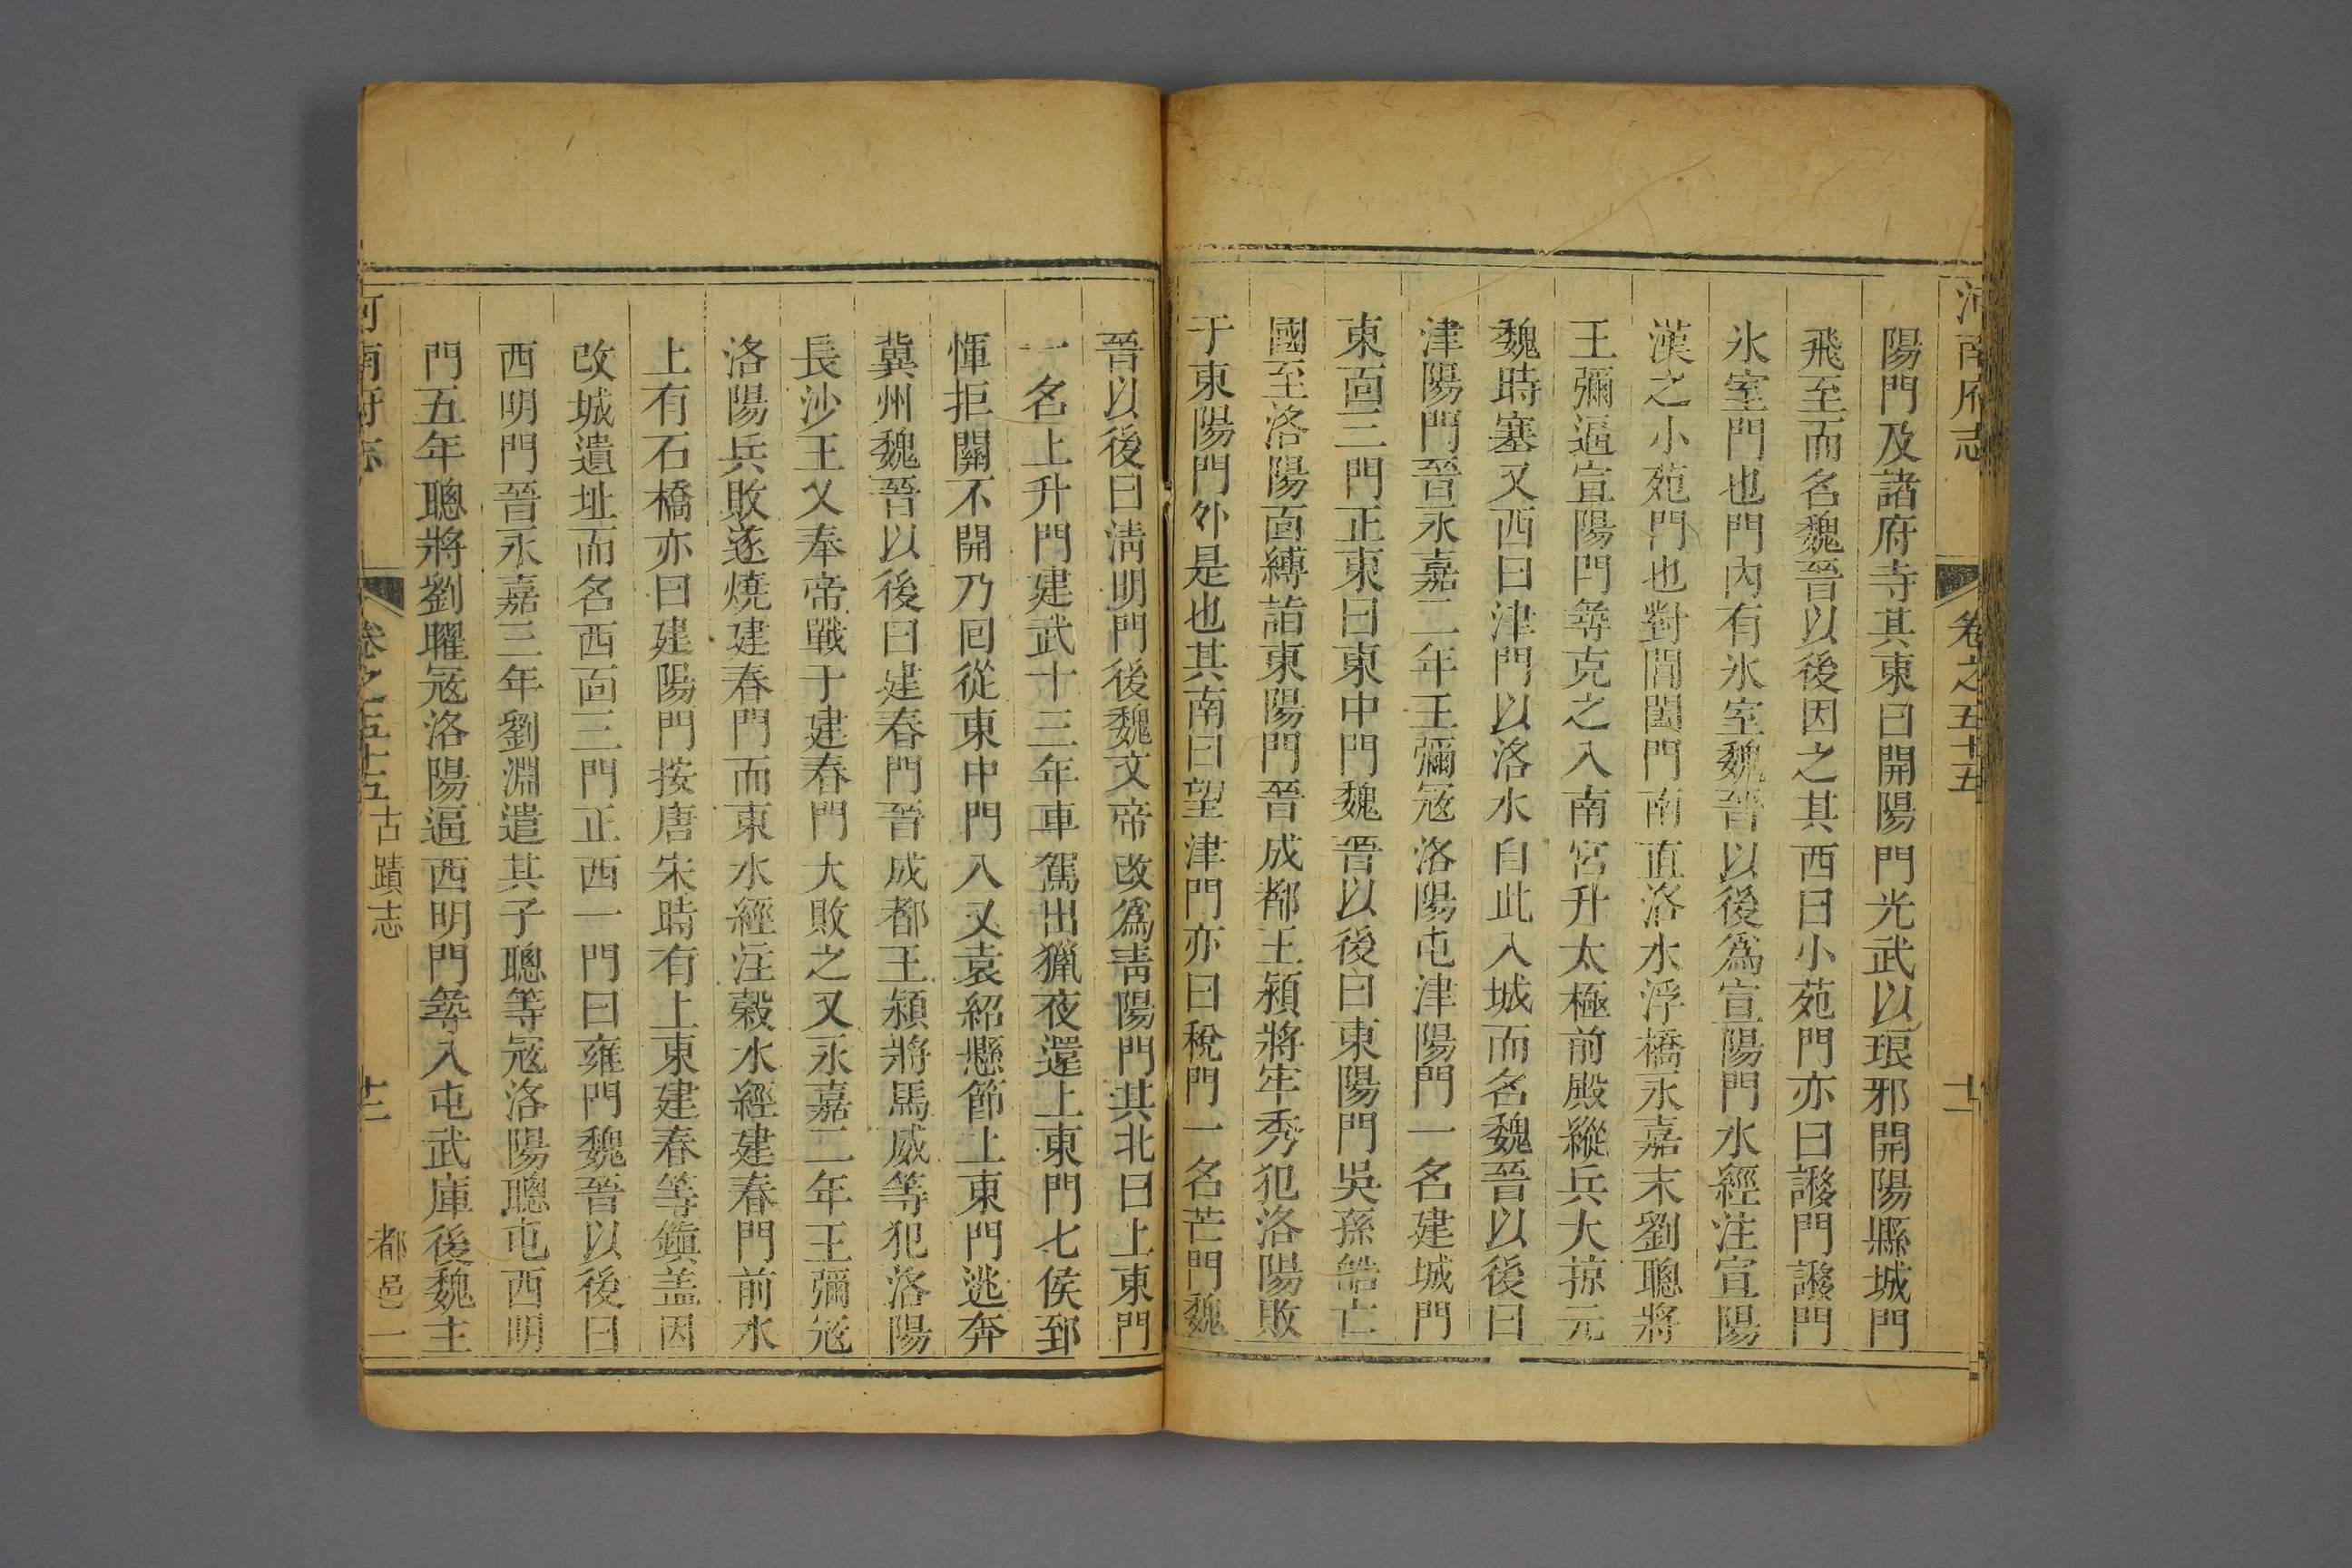 河南府志 卷之五十五 十一
陽門及諸府寺其東曰開陽門光武以琅邪開陽縣城門
飛至而名魏晉以後因之其西曰小苑門亦曰謻門謻門
氷室門也門內有氷室魏晉以後爲宣陽門水經注宣陽
漢之小苑門也對閶闔門南直洛水浮橋永嘉末劉聰將
王彌逼宣陽門㝷克之入南宮升太極前殿縱兵大掠元
魏時塞又西曰津門以洛水自此入城而名魏晉以後曰
津陽門晉永嘉二年王彌寇洛陽屯津陽門一名建城門
東面三門正東曰東中門魏晉以後曰東陽門吳孫皓亡
國至洛陽面縛詣東陽門晉成都王潁將牢秀犯洛陽敗
于東陽門外是也其南曰望津門亦曰稅門一名芒門魏
晉以後曰清明門後魏文帝改爲靑陽門其北曰上東門
一名上升門建武十三年車駕出獵夜還上東門七侯郅
惲拒關不開乃囘從東中門入又袁紹懸節上東門逃奔
冀州魏晉以後曰建春門晉成都王潁將馬咸等犯洛陽
長沙王乂奉帝戰于建春門大敗之又永嘉二年王彌寇
洛陽兵敗遂燒建春門而東水經注穀水經建春門前水
上有石橋亦曰建陽門按唐宋時有上東建春等鎮盖因
改城遺址而名西面三門正西一門曰雍門魏晉以後曰
西明門晉永嘉三年劉淵遣其子聰等寇洛陽聰屯西明
門五年聰將劉曜寇洛陽逼西明門㝷入屯武庫後魏主
河南府志 卷之五十五 古蹟志 十二 都邑一